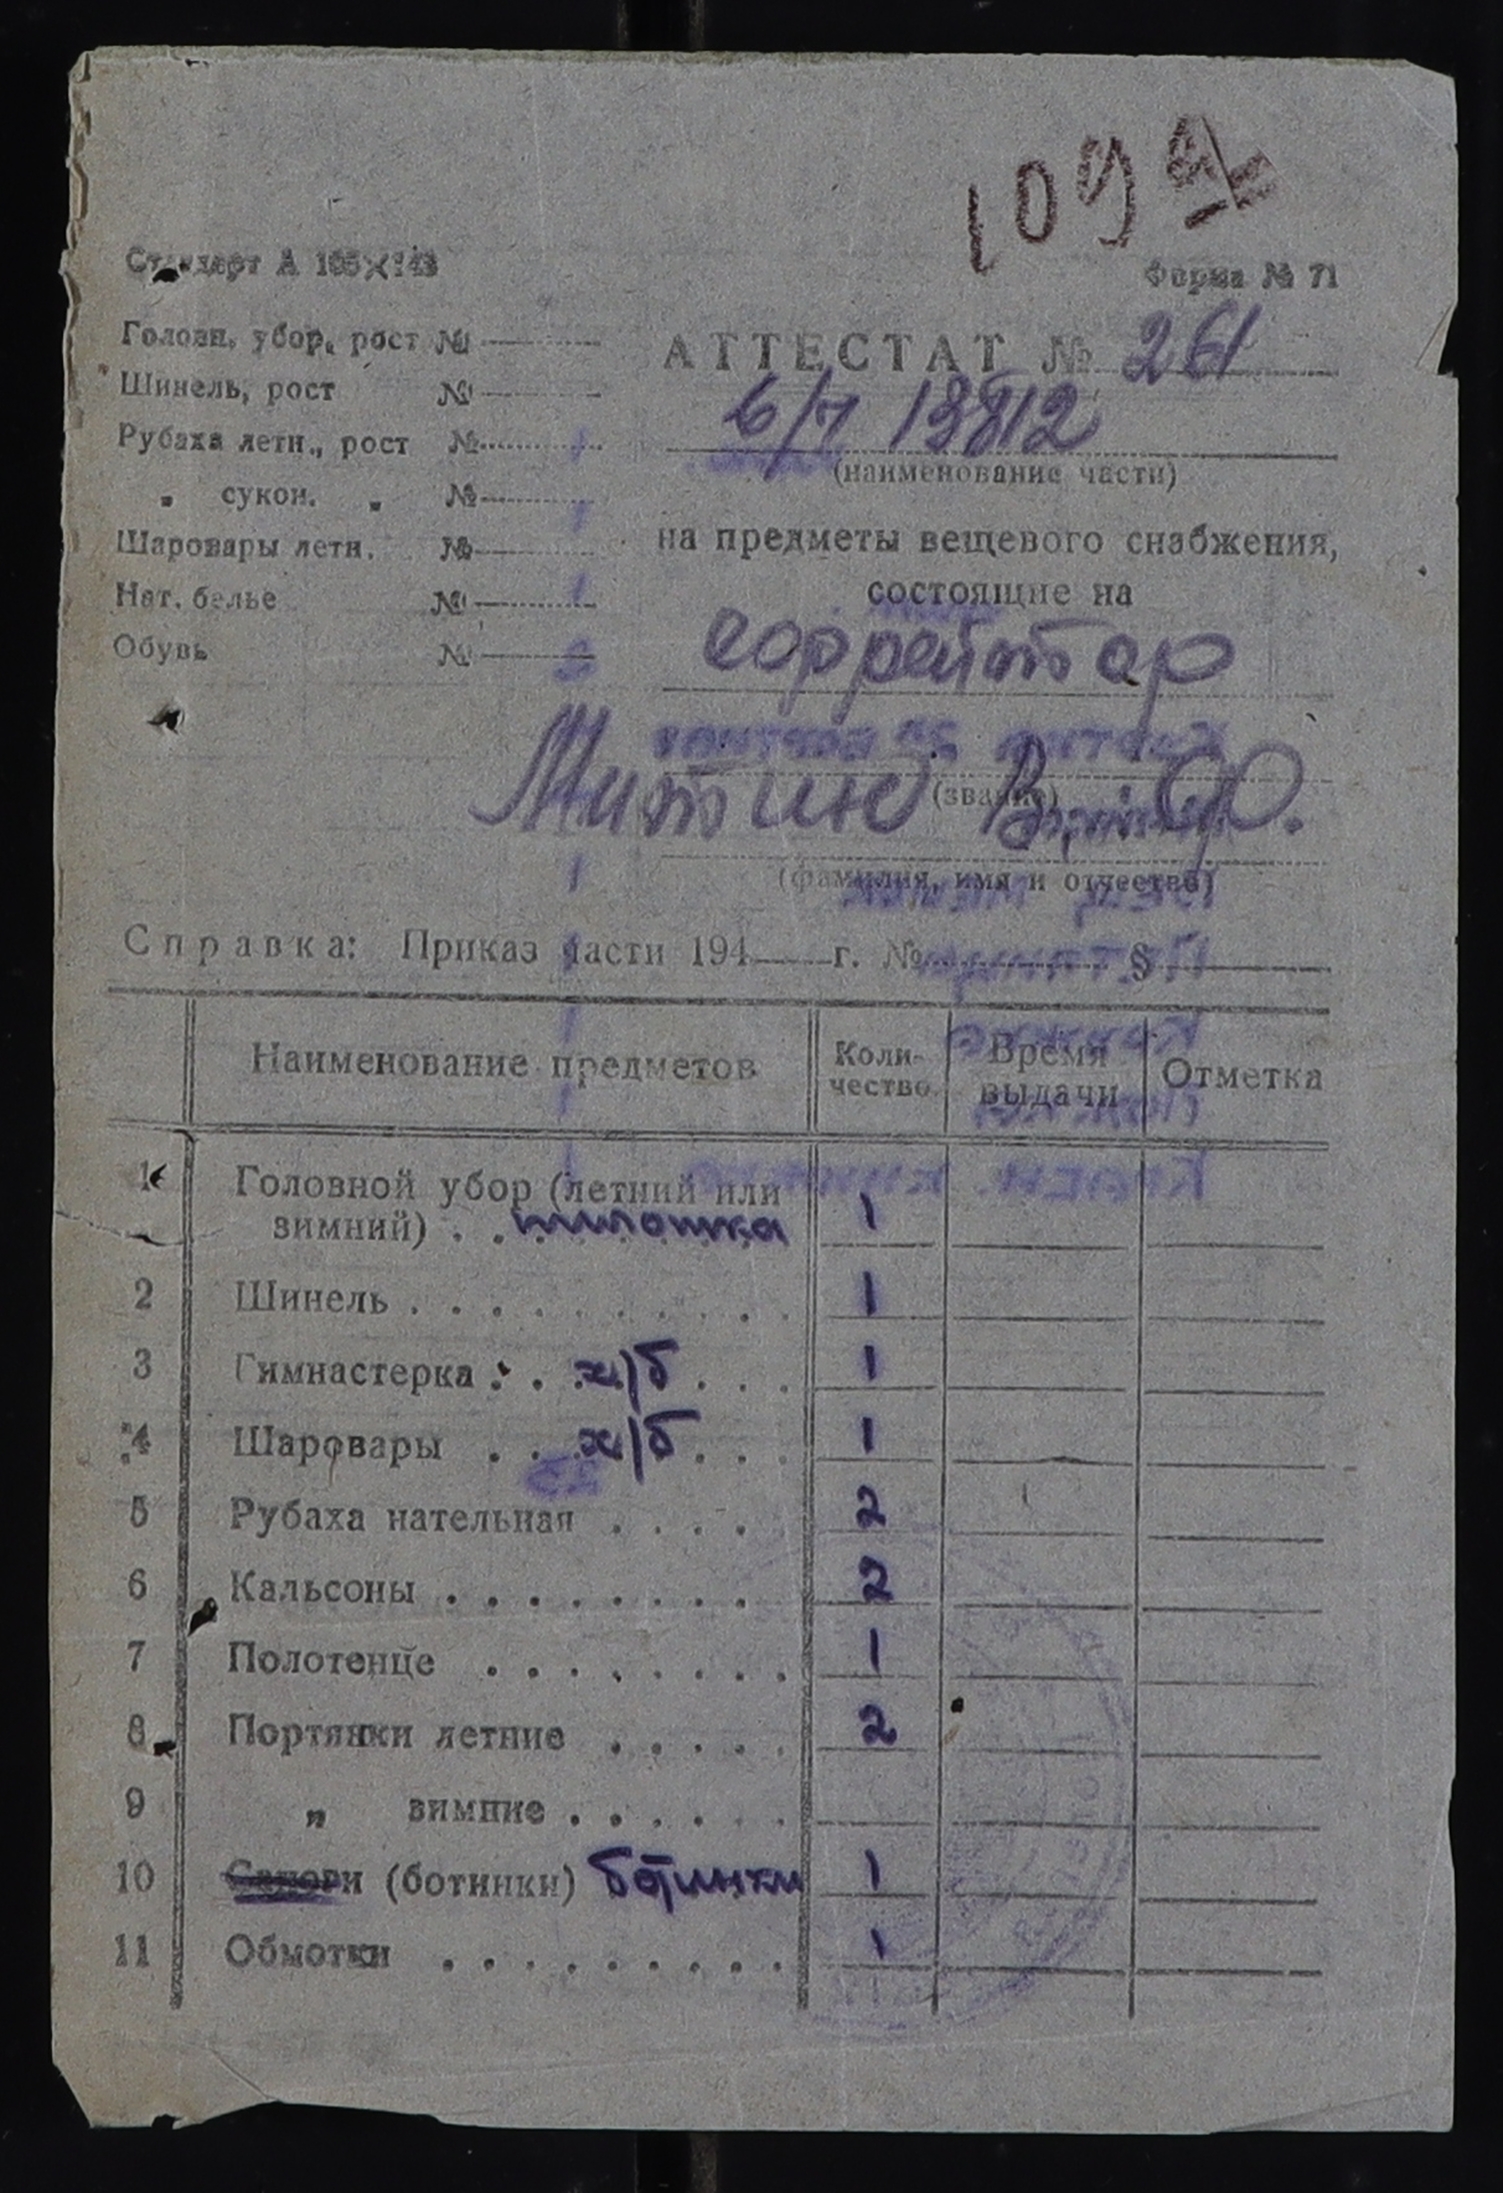 Стандарт А 105×148
Форма № 71
Головн. убор, рост №
Шинель, рост №
Рубаха летн., рост №
„ сукон. „ №
Шаровары летн. №
Нат. белье №
Обувь №
АТТЕСТАТ № 261
в/ч 19812
(наименование части)
на предметы вещевого снабжения,
состоящие на
ефрейтор
(звание)
Митин В. Ф.
(фамилия, имя и отчество)
Справка: Приказ части 194 г. № §
Наименование предметов
Коли-
чество
Время
выдачи
Отметка
1 Головной убор (летний или
зимний) . . пилотка 1
2 Шинель . . . . . . . . . . 1
3 Гимнастерка . . х/б . . . 1
4 Шаровары . . х/б . . . 1
5 Рубаха нательная . . . . 2
6 Кальсоны . . . . . . . . 2
7 Полотенце . . . . . . . . 1
8 Портянки летние . . . . . 2
9 „ зимние . . . . . .
10 Сапоги (ботинки) ботинки 1
11 Обмотки . . . . . . . . . 1